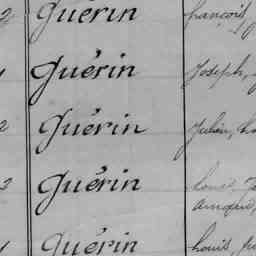 2 Guérin françois,
Guérin Joseph,
2 Guérin Julien,
2 Guérin Louis,
Guérin Louis,